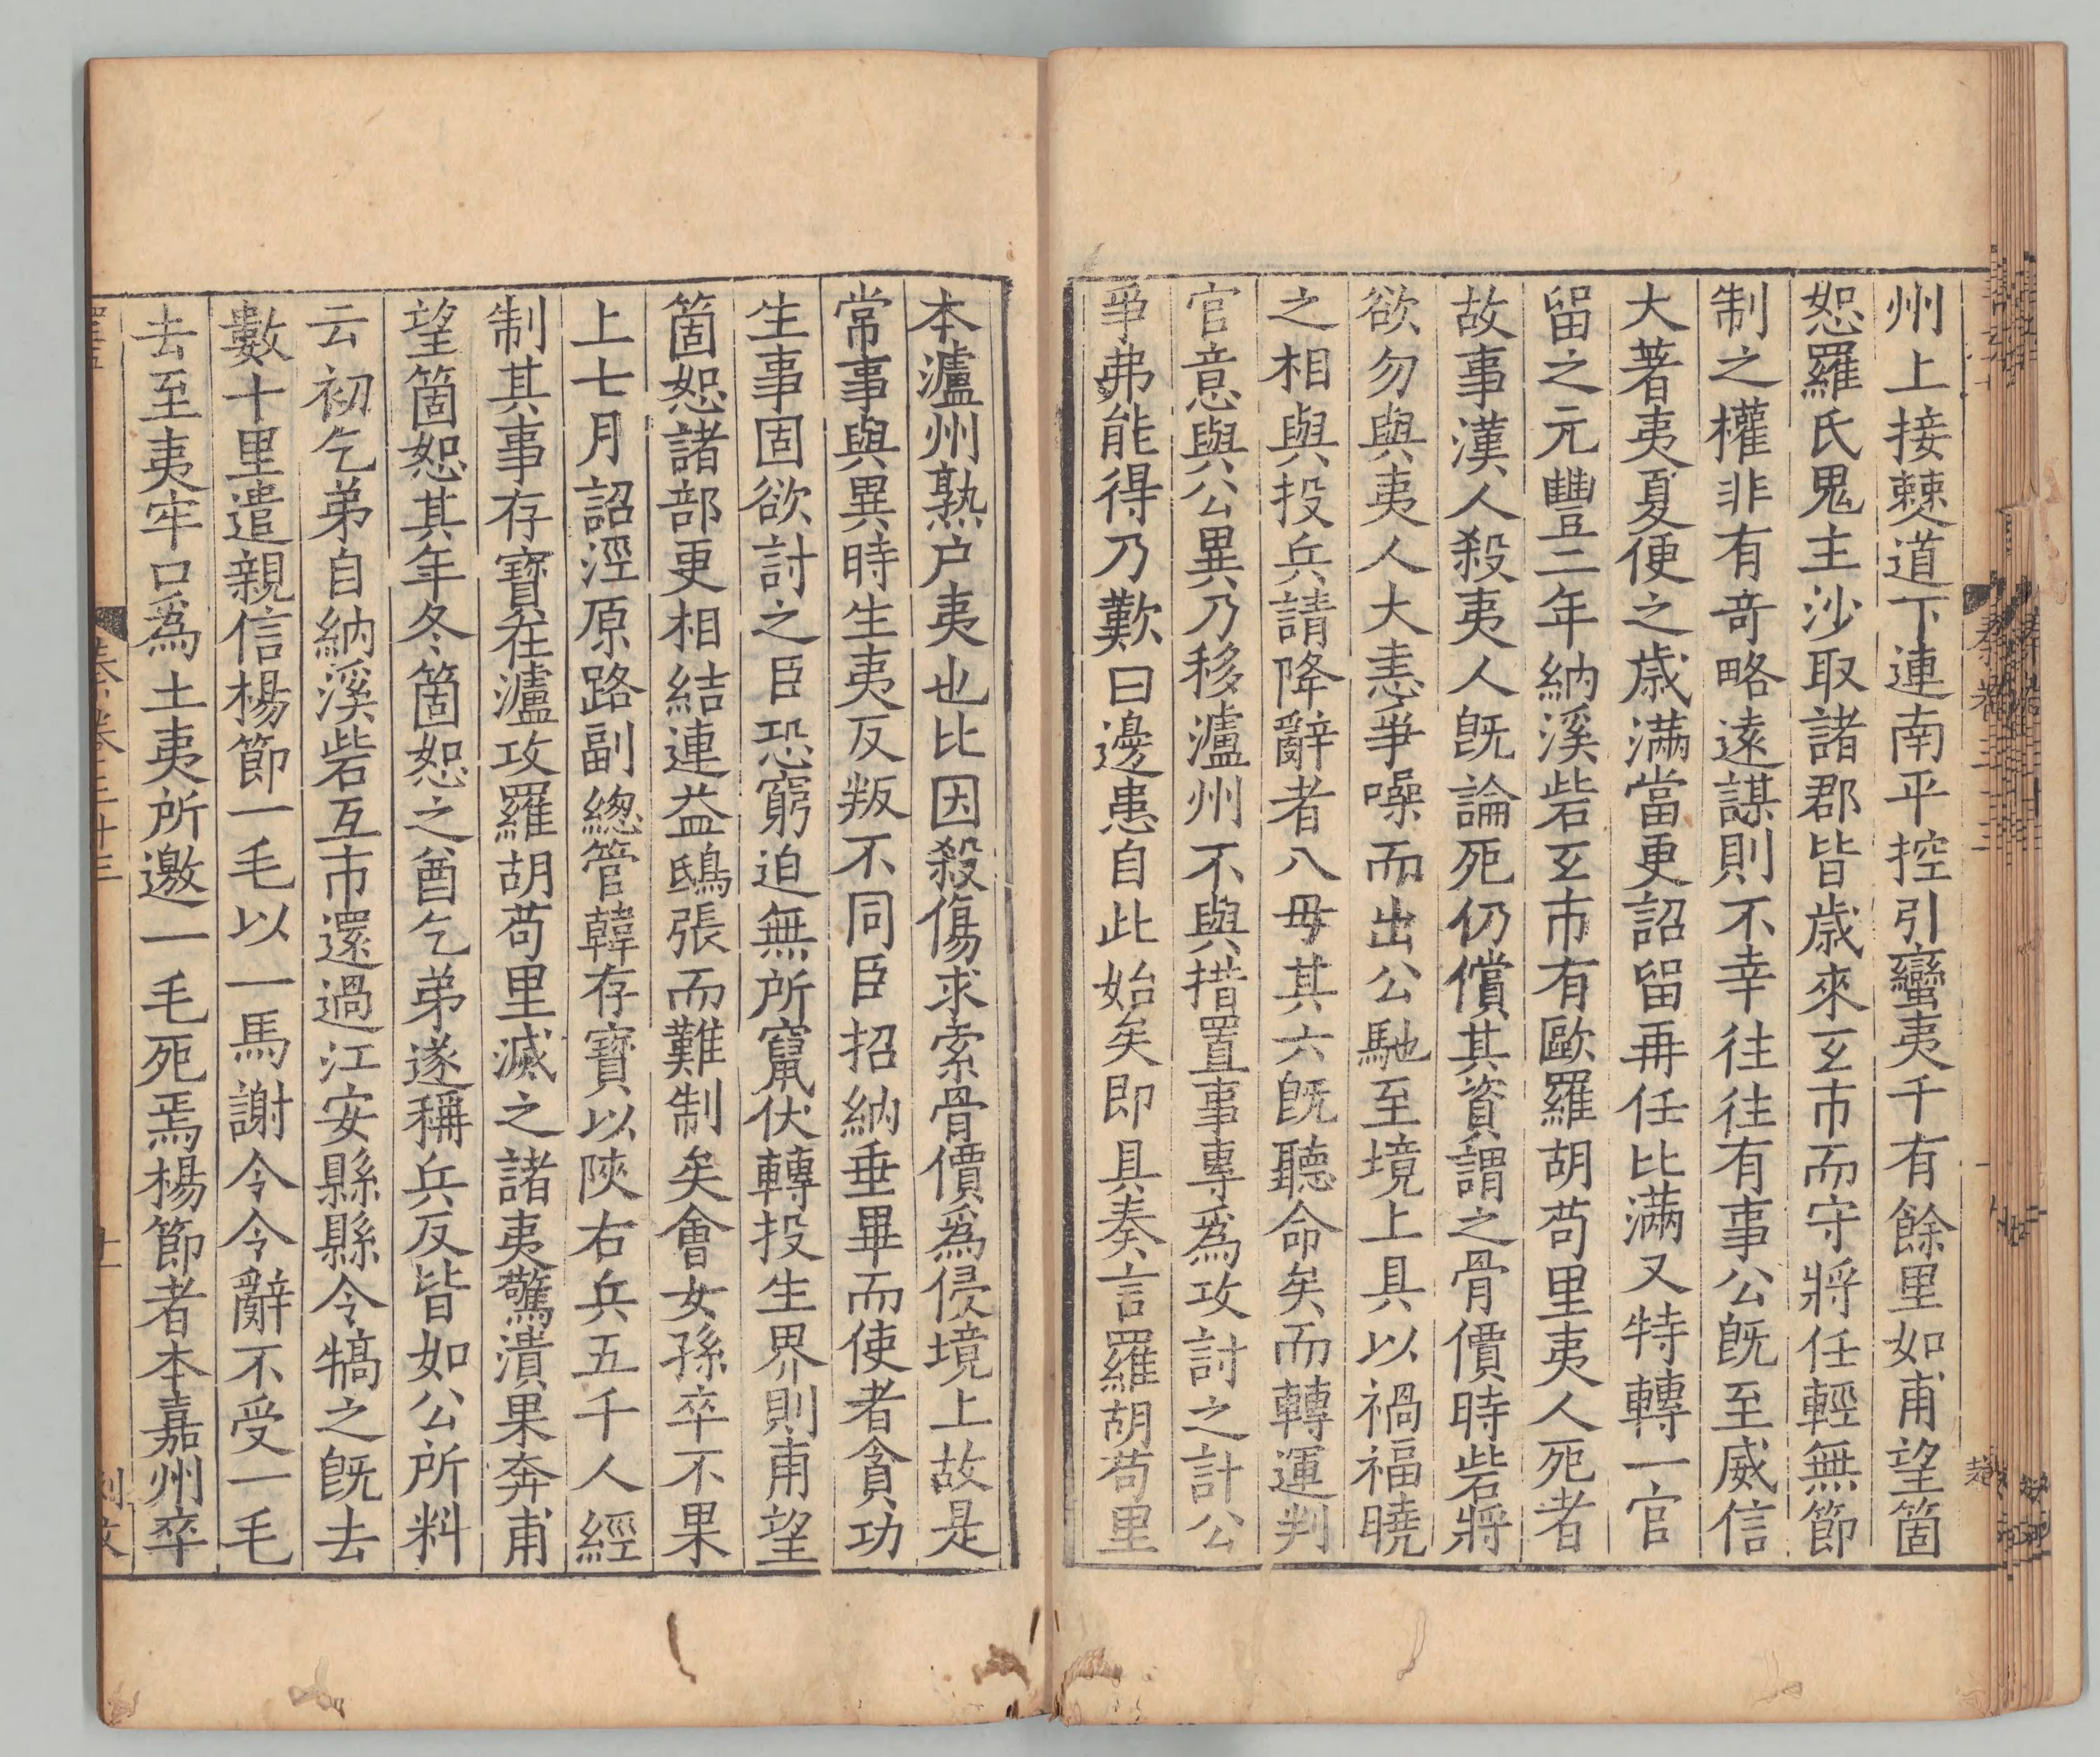 州上接僰道下連南平控引蠻夷千有餘里如甫望箇
恕羅氏鬼主沙取諸郡皆歳來互市而守將任輕無節
制之權非有奇略遠謀則不幸往往有事公既至威信
大著夷夏便之歳滿當更詔留再任比滿又特轉一官
留之元豐二年納溪砦互市有歐羅胡苟里夷人死者
故事漢人殺夷人既論死仍償其資謂之骨價時砦將
欲勿與夷人大恚爭噪而出公馳至境上具以禍福曉
之相與投兵請降辭者八毋其六既聽命矣而轉運判
官意與公異乃移瀘州不與措置事專爲攻討之計公
爭弗能得乃歎曰邊患自此始矣即具奏言羅胡苟里
本瀘州熟户夷也比因殺傷求索骨價爲侵境上故是
常事與異時生夷反叛不同臣招納垂畢而使者貪功
生事固欲討之臣恐窮迫無所竄伏轉投生界則甫望
箇恕諸部更相結連益鴟張而難制矣會女孫卒不果
上七月詔涇原路副緫管韓存寶以陝右兵五千人經
制其事存寶在瀘攻羅胡苟里滅之諸夷驚潰果奔甫
望箇恕其年冬箇恕之酋乞弟遂稱兵反皆如公所料
云初乞弟自納溪砦互市還過江安縣縣令犒之既去
數十里遣親信楊節一毛以一馬謝令令辭不受一毛
去至夷牢口爲土夷所邀一毛死焉楊節者本嘉州卒